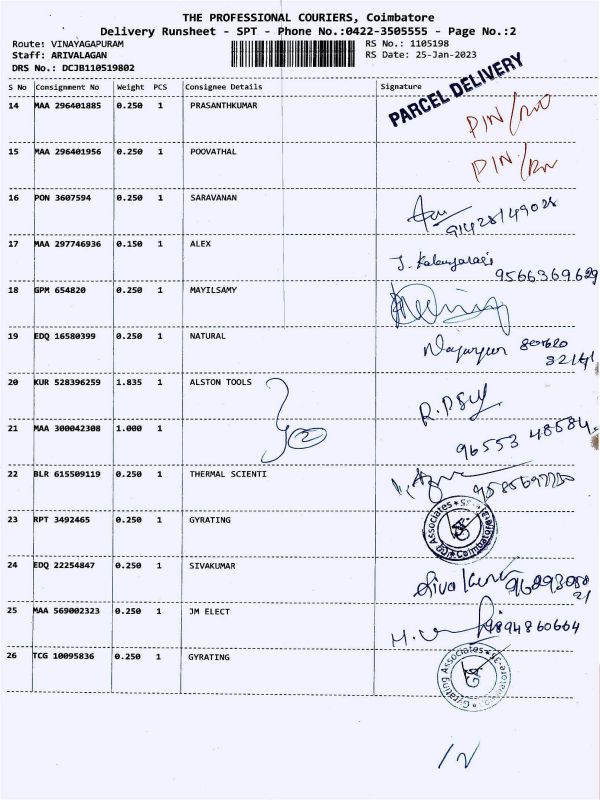 THE PROFESSIONAL COURIERS, Coimbatore
Delivery Runsheet - SPT - Phone No.:0422-3505555 - Page No.:2
Route: VINAYAGAPURAM RS No.: 1105198
Staff: ARIVALAGAN RS Date: 25-Jan-2023
DRS No.: DCJB110519802
PARCEL DELIVERY
S No Consignment No Weight PCS Consignee Details Signature
14 MAA 296401885 0.250 1 PRASANTHKUMAR PIN/
15 MAA 296401956 0.250 1 POOVATHAL PIN/
16 PON 3607594 0.250 1 SARAVANAN
17 MAA 297746936 0.150 1 ALEX
9566369629
18 GPM 654820 0.250 1 MAYILSAMY
19 EDQ 16580399 0.250 1 NATURAL
20 KUR 528396259 1.835 1 ALSTON TOOLS
21 MAA 300042308 1.000 1 2 96553 48584
22 BLR 615509119 0.250 1 THERMAL SCIENTI
23 RPT 3492465 0.250 1 GYRATING Associates Coimbatore
24 EDQ 22254847 0.250 1 SIVAKUMAR
25 MAA 569002323 0.250 1 JM ELECT 9894860664
26 TCG 10095836 0.250 1 GYRATING Gyrating Associates